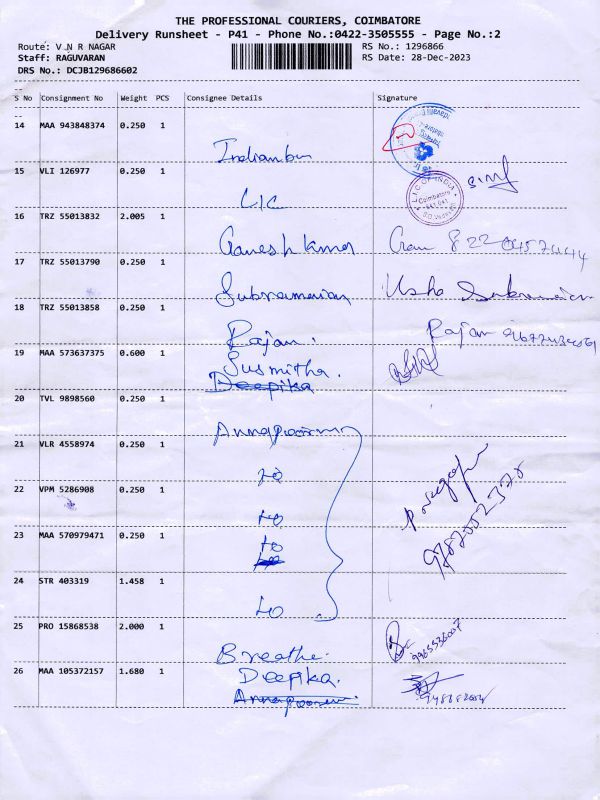 THE PROFESSIONAL COURIERS, COIMBATORE
Delivery Runsheet - P41 - Phone No.:0422-3505555 - Page No.:2
Route: V N R NAGAR RS No.: 1296866
Staff: RAGUVARAN RS Date: 28-Dec-2023
DRS No.: DCJB129686602
S No Consignment No Weight PCS Consignee Details Signature
14 MAA 943848374 0.250 1
15 VLI 126977 0.250 1
LIC
L.I.C OF INDIA
Coimbatore
16 TRZ 55013832 2.005 1
Ganesh kumar
17 TRZ 55013790 0.250 1
Subramanian Usha Subramanian
18 TRZ 55013858 0.250 1
Rajan. Rajan
19 MAA 573637375 0.600 1
Susmitha.
Deepika
20 TVL 9898560 0.250 1
Annapoorna
21 VLR 4558974 0.250 1
22 VPM 5286908 0.250 1
23 MAA 570979471 0.250 1
24 STR 403319 1.458 1
25 PRO 15868538 2.000 1
Breathe.
26 MAA 105372157 1.680 1
Deepika.